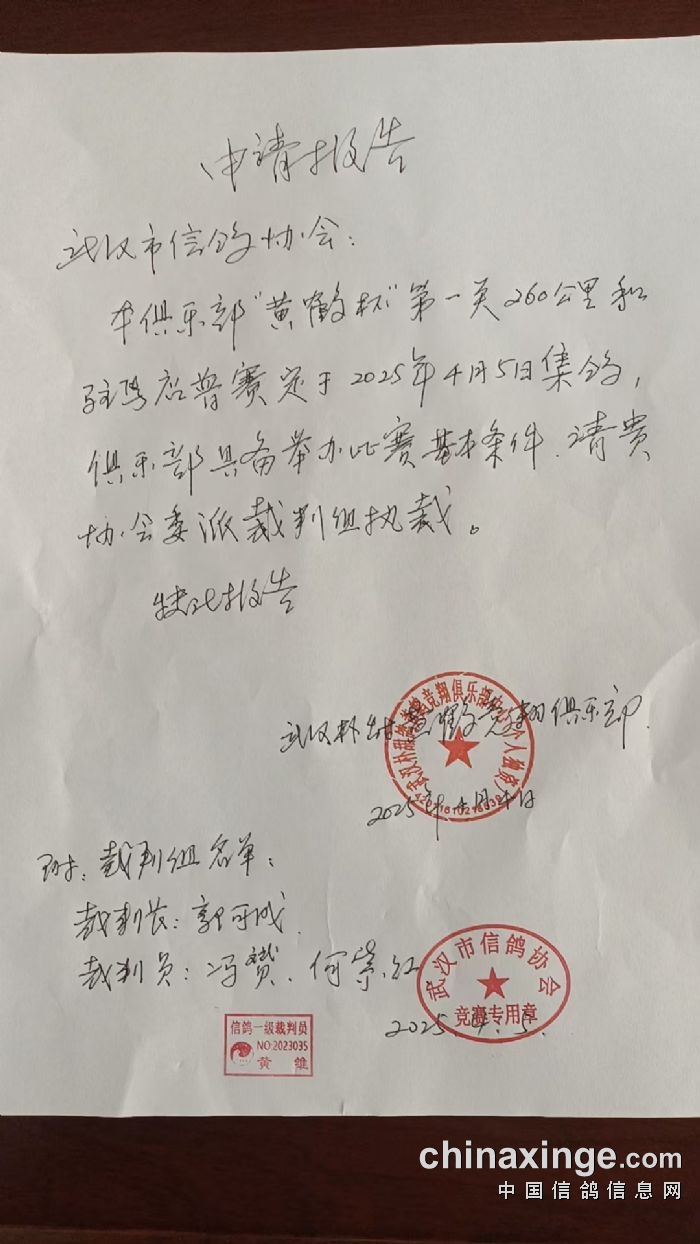 申请报告
武汉市信鸽协会：
本俱乐部“黄鹤杯”第一关260公里和
驻马店普赛定于2025年4月5日集鸽，
俱乐部具备举办比赛基本条件.请贵
协会委派裁判组执裁。
特此报告
武汉 黄鹤竞翔俱乐部.
2025年4月 日
附：裁判组名单：
裁判长：郭可成.
裁判员：冯赟、何崇红
武汉市信鸽协会
竞赛专用章
2025.4.5.
信鸽一级裁判员
NO:2023035
黄 雄
chinaxinge.com
中国信鸽信息网